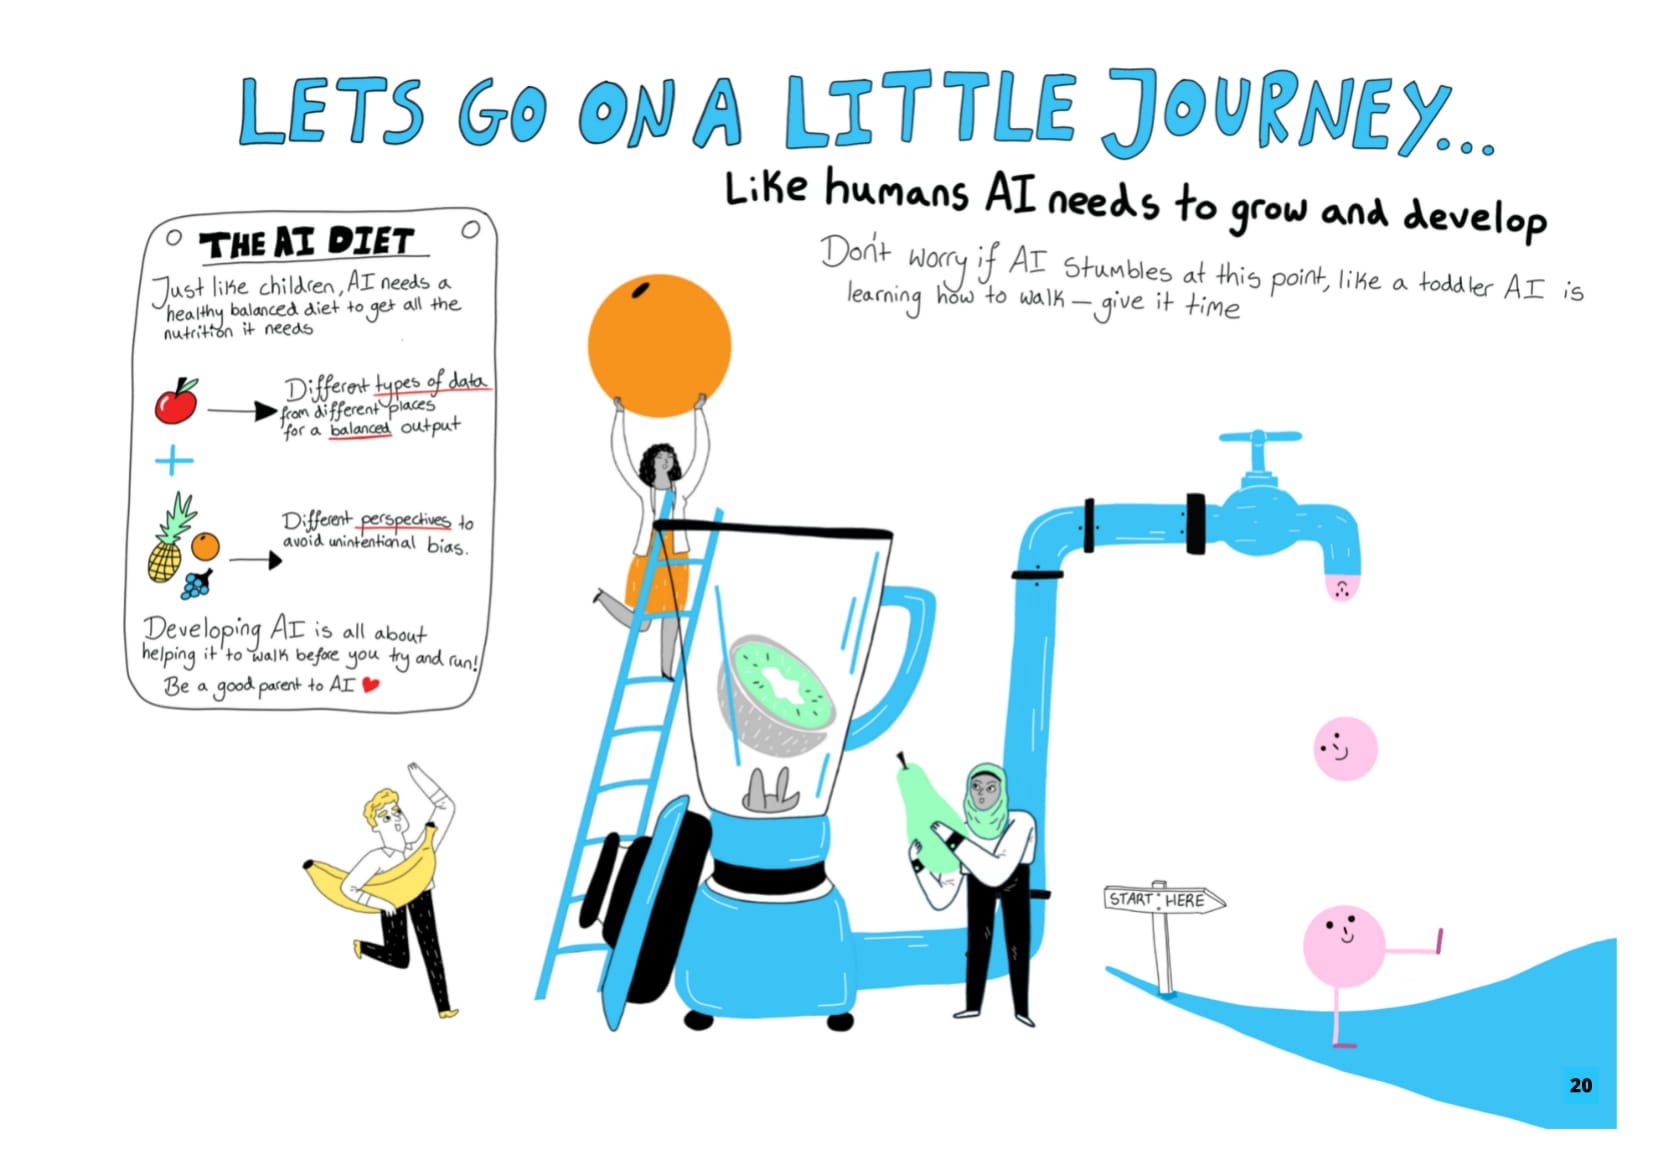 LETS GO ON A LITTLE JOURNEY...
Like humans AI needs to grow and develop
Don't worry if AI stumbles at this point, like a toddler AI is
learning how to walk – give it time
THE AI DIET
Just like children, AI needs a
healthy balanced diet to get all the
nutrition it needs
Different types of data
from different places
for a balanced output
+
Different perspectives to
avoid unintentional bias.
Developing AI is all about
helping it to walk before you try and run!
Be a good parent to AI ♥
START HERE
20